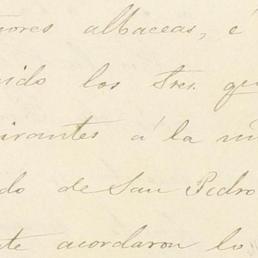 ñores albaceas, é
nido los tres qu
irantes á la m
do de San Pedro
te acordaron lo